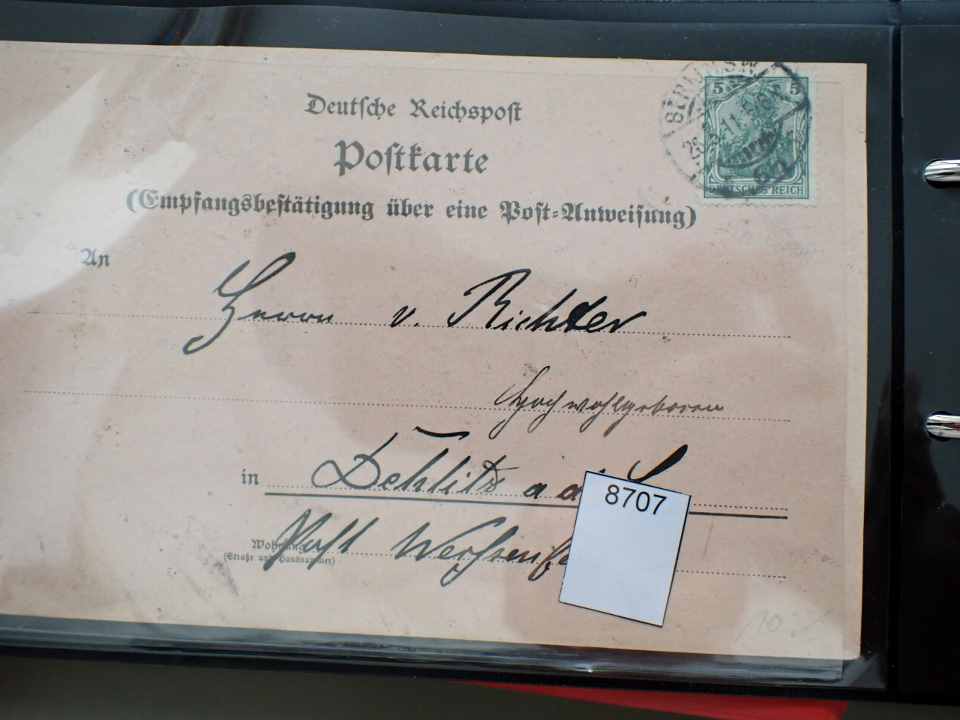 Deutsche Reichspost
Postkarte
(Empfangsbestätigung über eine Post-Anweisung)
5 5
DEUTSCHES REICH
BERLIN SW
An
Herrn v. Richter
Hochwohlgeboren
in Dehlitz a
8707
Post
Wohnung
(Straße und Hausnummer)